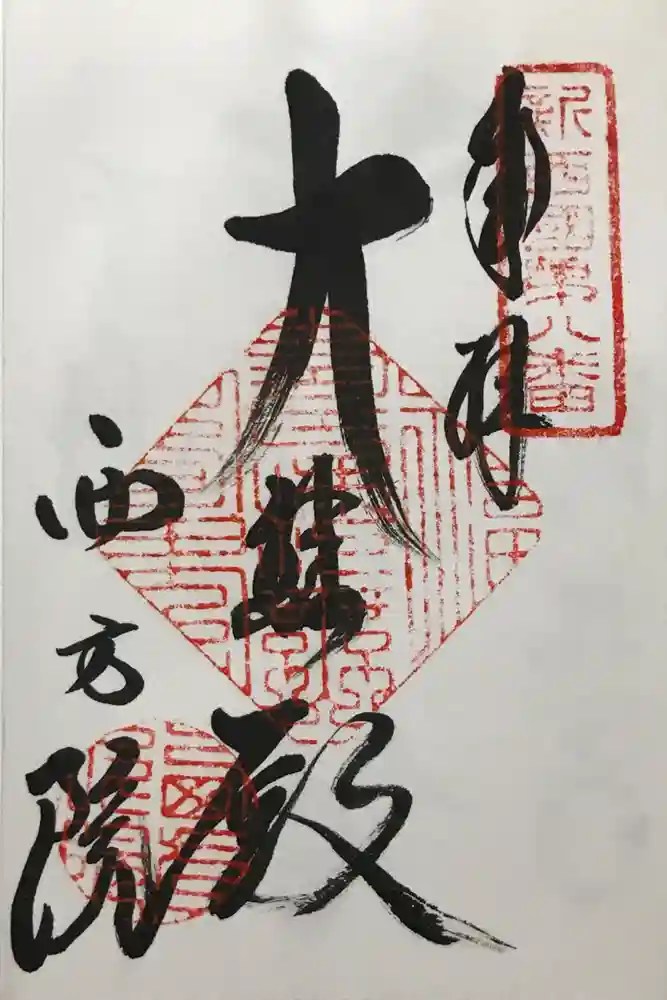 新西国第八番
奉拝
大悲殿
西方院